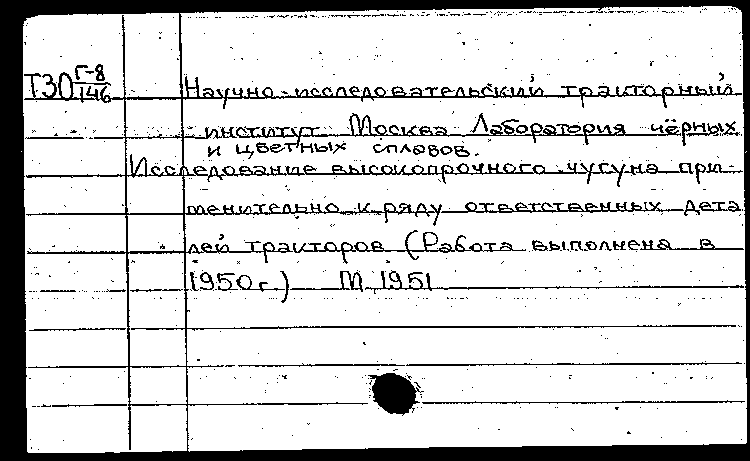 Т30 Г-8/146
Научно-исследовательский тракторный
институт. Москва. Лаборатория чёрных
и цветных сплавов.
Исследование высокопрочного чугуна при-
менительно к ряду ответственных дета
лей тракторов (Работа выполнена в
1950 г.) М, 1951